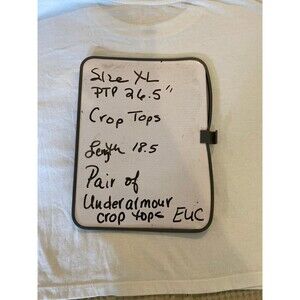 Size XL
PTP 26.5"
Crop Tops
Length 18.5
Pair of
Underarmour
crop tops EUC